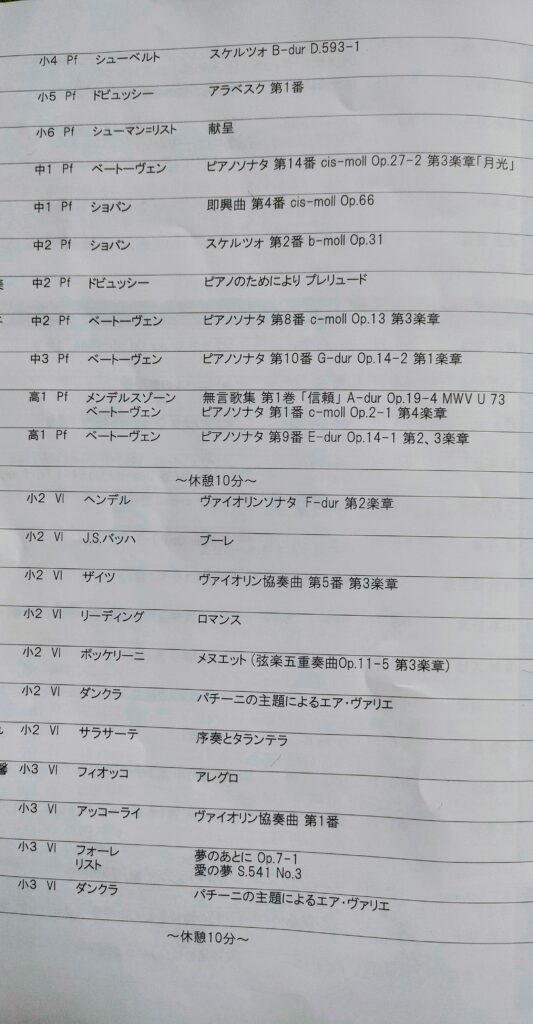 小4 Pf シューベルト スケルツォ B-dur D.593-1
小5 Pf ドビュッシー アラベスク 第1番
小6 Pf シューマン=リスト 献呈
中1 Pf ベートーヴェン ピアノソナタ 第14番 cis-moll Op.27-2 第3楽章「月光」
中1 Pf ショパン 即興曲 第4番 cis-moll Op.66
中2 Pf ショパン スケルツォ 第2番 b-moll Op.31
中2 Pf ドビュッシー ピアノのためにより プレリュード
中2 Pf ベートーヴェン ピアノソナタ 第8番 c-moll Op.13 第3楽章
中3 Pf ベートーヴェン ピアノソナタ 第10番 G-dur Op.14-2 第1楽章
高1 Pf メンデルスゾーン 無言歌集 第1巻 「信頼」 A-dur Op.19-4 MWV U 73
ベートーヴェン ピアノソナタ 第1番 c-moll Op.2-1 第4楽章
高1 Pf ベートーヴェン ピアノソナタ 第9番 E-dur Op.14-1 第2、3楽章
～休憩10分～
小2 Vl ヘンデル ヴァイオリンソナタ F-dur 第2楽章
小2 Vl J.S.バッハ ブーレ
小2 Vl ザイツ ヴァイオリン協奏曲 第5番 第3楽章
小2 Vl リーディング ロマンス
小2 Vl ボッケリーニ メヌエット（弦楽五重奏曲Op.11-5 第3楽章）
小2 Vl ダンクラ パチーニの主題によるエア・ヴァリエ
小2 Vl サラサーテ 序奏とタランテラ
小3 Vl フィオッコ アレグロ
小3 Vl アッコーライ ヴァイオリン協奏曲 第1番
小3 Vl フォーレ 夢のあとに Op.7-1
リスト 愛の夢 S.541 No.3
小3 Vl ダンクラ パチーニの主題によるエア・ヴァリエ
～休憩10分～